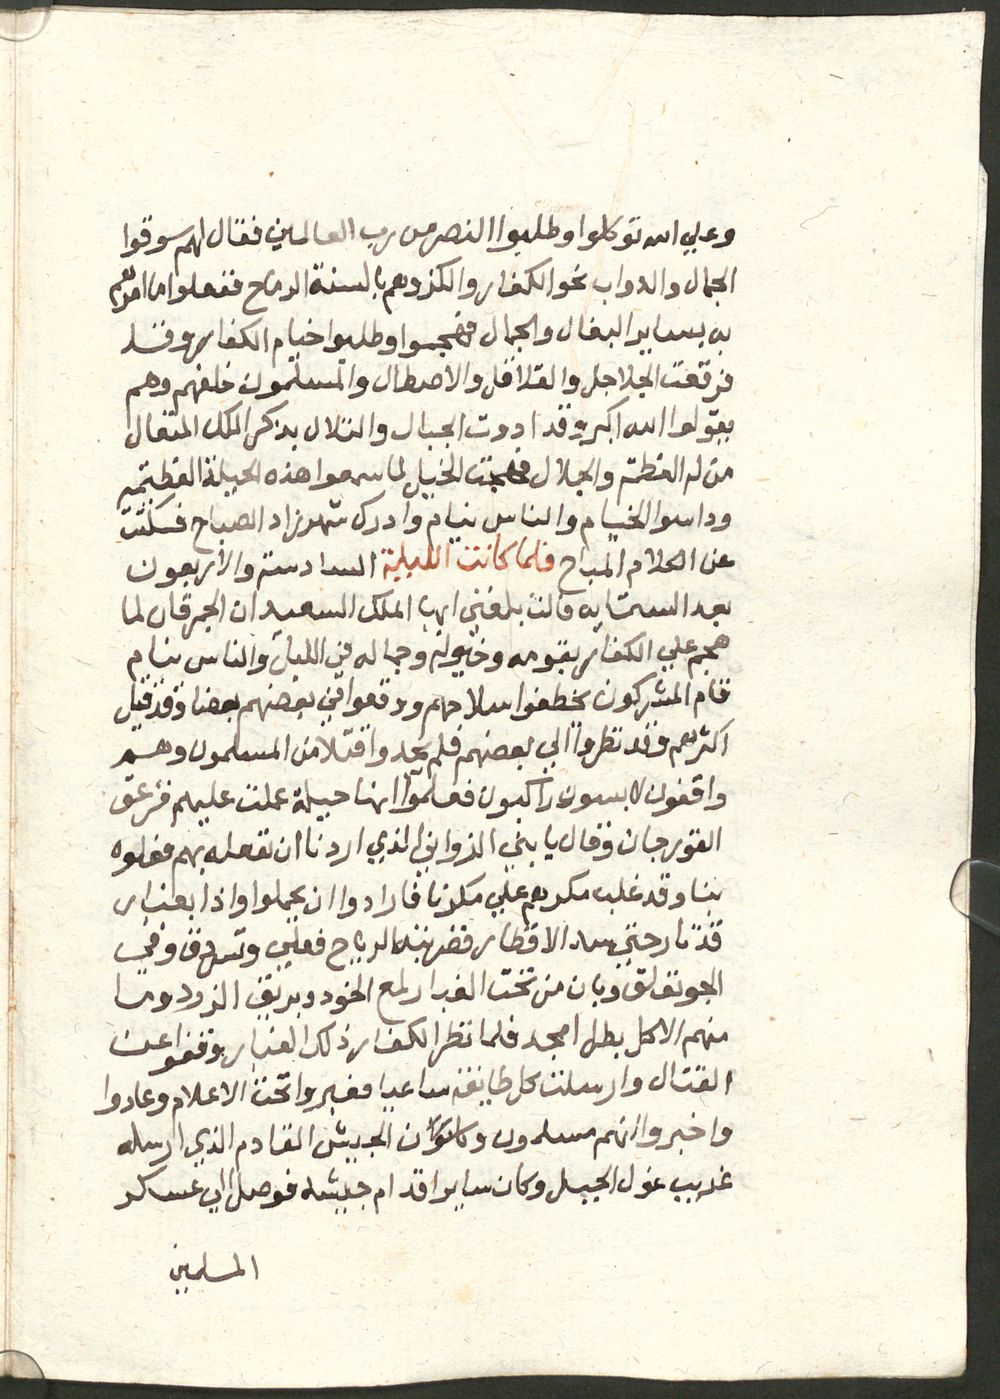 وعلي الله توكلوا وطلبوا النصر من رب العالمين فقال لهم سوقوا
الجمال والدواب نحو الكفار والكزوهم بالسنة الرماح ففعلوا ما امرهم
به بساير البغال والجمال فهجموا وطلبوا خيام الكفار وقد
قرقعت الجلاجل والقلاقل والاصطال والمسلمون خلفهم وهم
يقولوا الله اكبر وقد ادوت الجبال والتلال بذكر الملك المتعال
من له العظمة والجلال فهجت الخيل لما سمعوا هذه الحيلة العظيمة
وداسوا الخيام والناس نيام وادرك شهرزاد الصباح فسكتت
عن الكلام المباح فلما كانت الليلة السادسة والاربعون
بعد الستمايه قالت بلغني ايها الملك السعيد ان الجمرقان لما
هجم علي الكفار بقومه وخيوله وجماله في الليل والناس نيام
قام المشركون يخطفوا سلاحهم ووقعوا في بعضهم بعضا وقد قتل
اكثرهم وقد نظروا الي بعضهم فلم يجدوا قتلا من المسلمون وهم
واقفون لابسون راكبون فعلموا انها حيلة عملت عليهم فزعق
القورجان وقال يا بني الزواني الذي اردنا ان نفعله بهم فعلوه
بنا وقد غلب مكرهم علي مكرنا فارادوا ان يحملوا واذا بغبار
قد ثار حتي سد الاقطار فضربته الرياح فعلي وتسردق وفي
الجو تعلق وبان من تحت الغبار لمع الخود وبريق الزرد وما
منهم الا كل بطل امجد فلما نظر الكفار ذلك الغبار وقفوا عن
القتال وارسلت كل طايفة ساعيا فعبروا تحت الاعلام وعادوا
واخبروا انهم مسلمون وكان الجيش القادم الذي ارسله
غريب غول الجبل وكان سايرا قدام جيشه فوصل الي عسكر
المسلمين